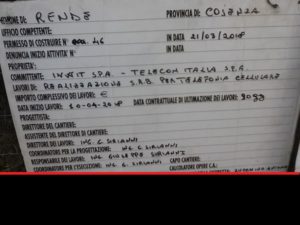 COMUNE DI: RENDE PROVINCIA DI: COSENZA
UFFICIO COMPETENTE:
PERMESSO DI COSTRUIRE N° 46 IN DATA 21/03/2018
DENUNCIA INIZIO ATTIVITA' N° IN DATA
PROPRIETA':
COMMITTENTE: INWIT SPA - TELECOM ITALIA S.P.A.
LAVORI DI: REALIZZAZIONE S.R.B. PER TELEFONIA CELLULARE
IMPORTO COMPLESSIVO DEI LAVORI: €
DATA INIZIO LAVORI: 30-04-2018 DATA CONTRATTUALE DI ULTIMAZIONE DEI LAVORI:
PROGETTISTA:
DIRETTORE DEL CANTIERE:
ASSISTENTE DEL DIRETTORE DI CANTIERE:
DIRETTORE DEI LAVORI: ING. G. SIRIANNI
COORDINATORE PER LA PROGETTAZIONE: ING. G. SIRIANNI
RESPONSABILE DEI LAVORI: ING. GIUSEPPE SIRIANNI
COORDINATORE PER L'ESECUZIONE: ING. G. SIRIANNI CAPO CANTIERE:
CALCOLATORE OPERE C.A.: